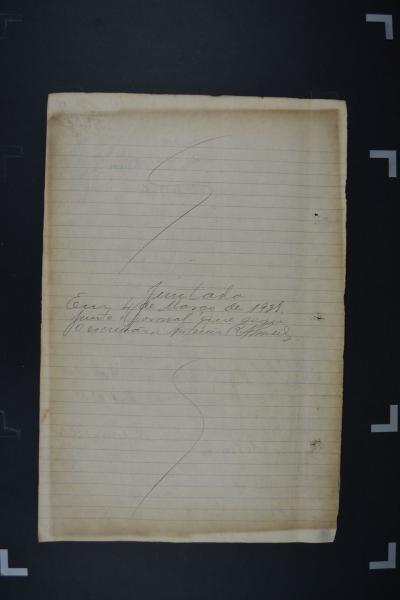 Juntada
Em 4 de Março de 1921,
junto o jornal que segue.
O escrivão